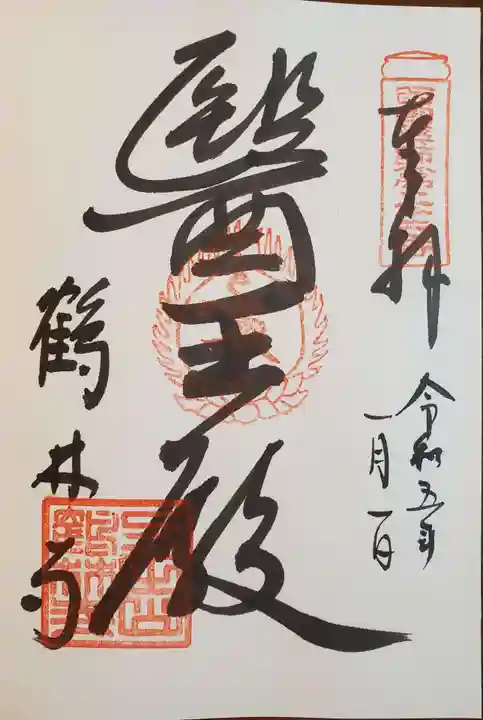 奉拝
令和五年
一月一日
醫王殿
鶴林寺